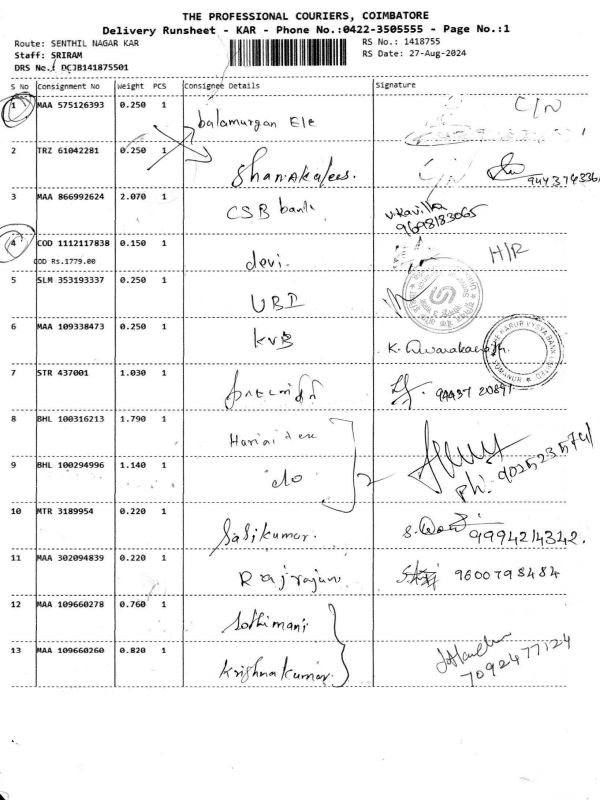 THE PROFESSIONAL COURIERS, COIMBATORE
Delivery Runsheet - KAR - Phone No.:0422-3505555 - Page No.:1
Route: SENTHIL NAGAR KAR RS No.: 1418755
Staff: SRIRAM RS Date: 27-Aug-2024
DRS No.: DCJB141875501
S No Consignment No Weight PCS Consignee Details Signature
1 MAA 575126393 0.250 1 balamurgan Ele C/N
2 TRZ 61042281 0.250 1
3 MAA 866992624 2.070 1 CSB bank 9698183065
4 COD 1112117838 0.150 1 devi. H/R
COD Rs.1779.00
5 SLM 353193337 0.250 1 UBI
6 MAA 109338473 0.250 1 KVB
7 STR 437001 1.030 1 94437 20891
8 BHL 100316213 1.790 1
9 BHL 100294996 1.140 1 do Ph: 9025235741
10 MTR 3189954 0.220 1 Sasikumar. 9994214342.
11 MAA 302094839 0.220 1 9600798484
12 MAA 109660278 0.760 1 Jothimani
13 MAA 109660260 0.820 1 Krishnakumar. 7092477124